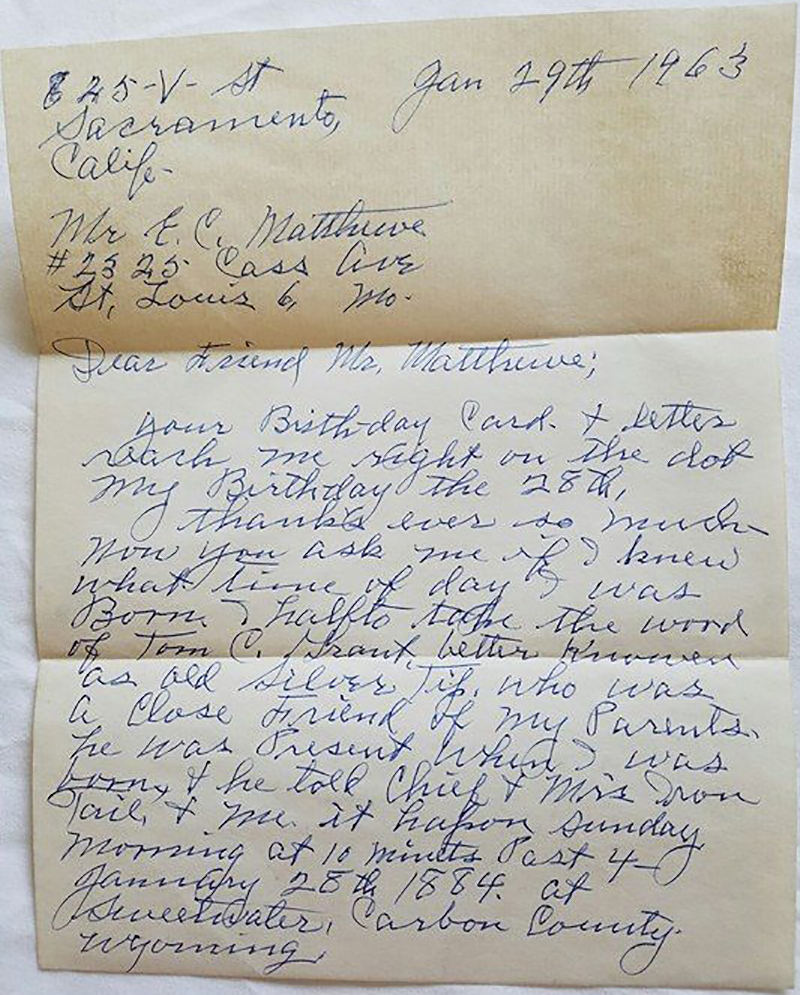 825-V- St Jan 29th 1963
Sacramento,
Calif-
Mr E. C. Matthewe
#2325 Cass Ave
St, Louis 6, Mo.
Dear Friend Mr, Matthewe;
your Birthday Card. & letter
reach me right on the dot
My Birthday the 28th,
thanks ever so much-
Now you ask me if I knew
what time of day I was
Born. I halfto take the word
of Tom C. Grant, better Knowen
as old Silver Tip, who was
a Close Friend of my Parents.
he was Present when I was
born, & he told Chief & Mrs Iron
Tail, & me. it hapon Sunday
Morning at 10 minuts Past 4-
January 28th 1884. at
Sweetwater, Carbon County.
Wyoming,